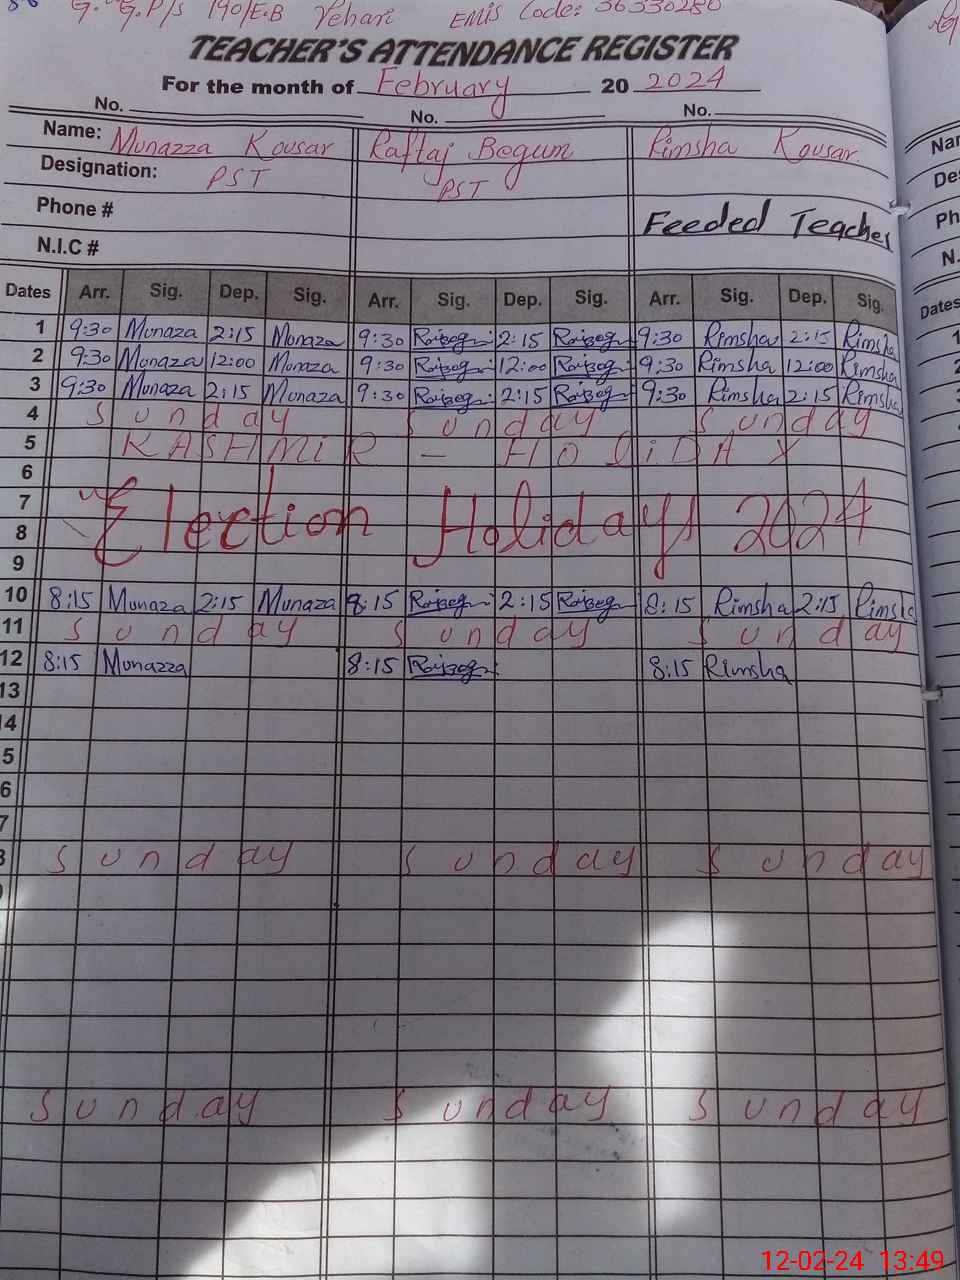 G. G.P/S 190/E.B Vehari EMIS Code: 36330280
TEACHER'S ATTENDANCE REGISTER
For the month of February 20 2024
No. No. No.
Name: Munazza Kousar Raftaj Begum Rimsha Kousar.
Designation: PST PST
Phone # Feeded Teacher
N.I.C #
Dates Arr. Sig. Dep. Sig. Arr. Sig. Dep. Sig. Arr. Sig. Dep. Sig.
1 9:30 Munaza 2:15 Munaza 9:30 2:15 9:30 Rimsha 2:15 Rimsha
2 9:30 Munaza 12:00 Munaza 9:30 12:00 9:30 Rimsha 12:00 Rimsha
3 9:30 Munaza 2:15 Munaza 9:30 2:15 9:30 Rimsha 2:15 Rimsha
4 Sunday Sunday Sunday
5 KASHMIR - HOLIDAY
6
7 "Election Holidays 2024
8
9
10 8:15 Munaza 2:15 Munaza 8:15 2:15 8:15 Rimsha 2:15 Rimsha
11 Sunday Sunday Sunday
12 8:15 Munazza 8:15 8:15 Rimsha
13
14
5
6
7
Sunday Sunday Sunday
Sunday Sunday Sunday
12-02-24 13:49